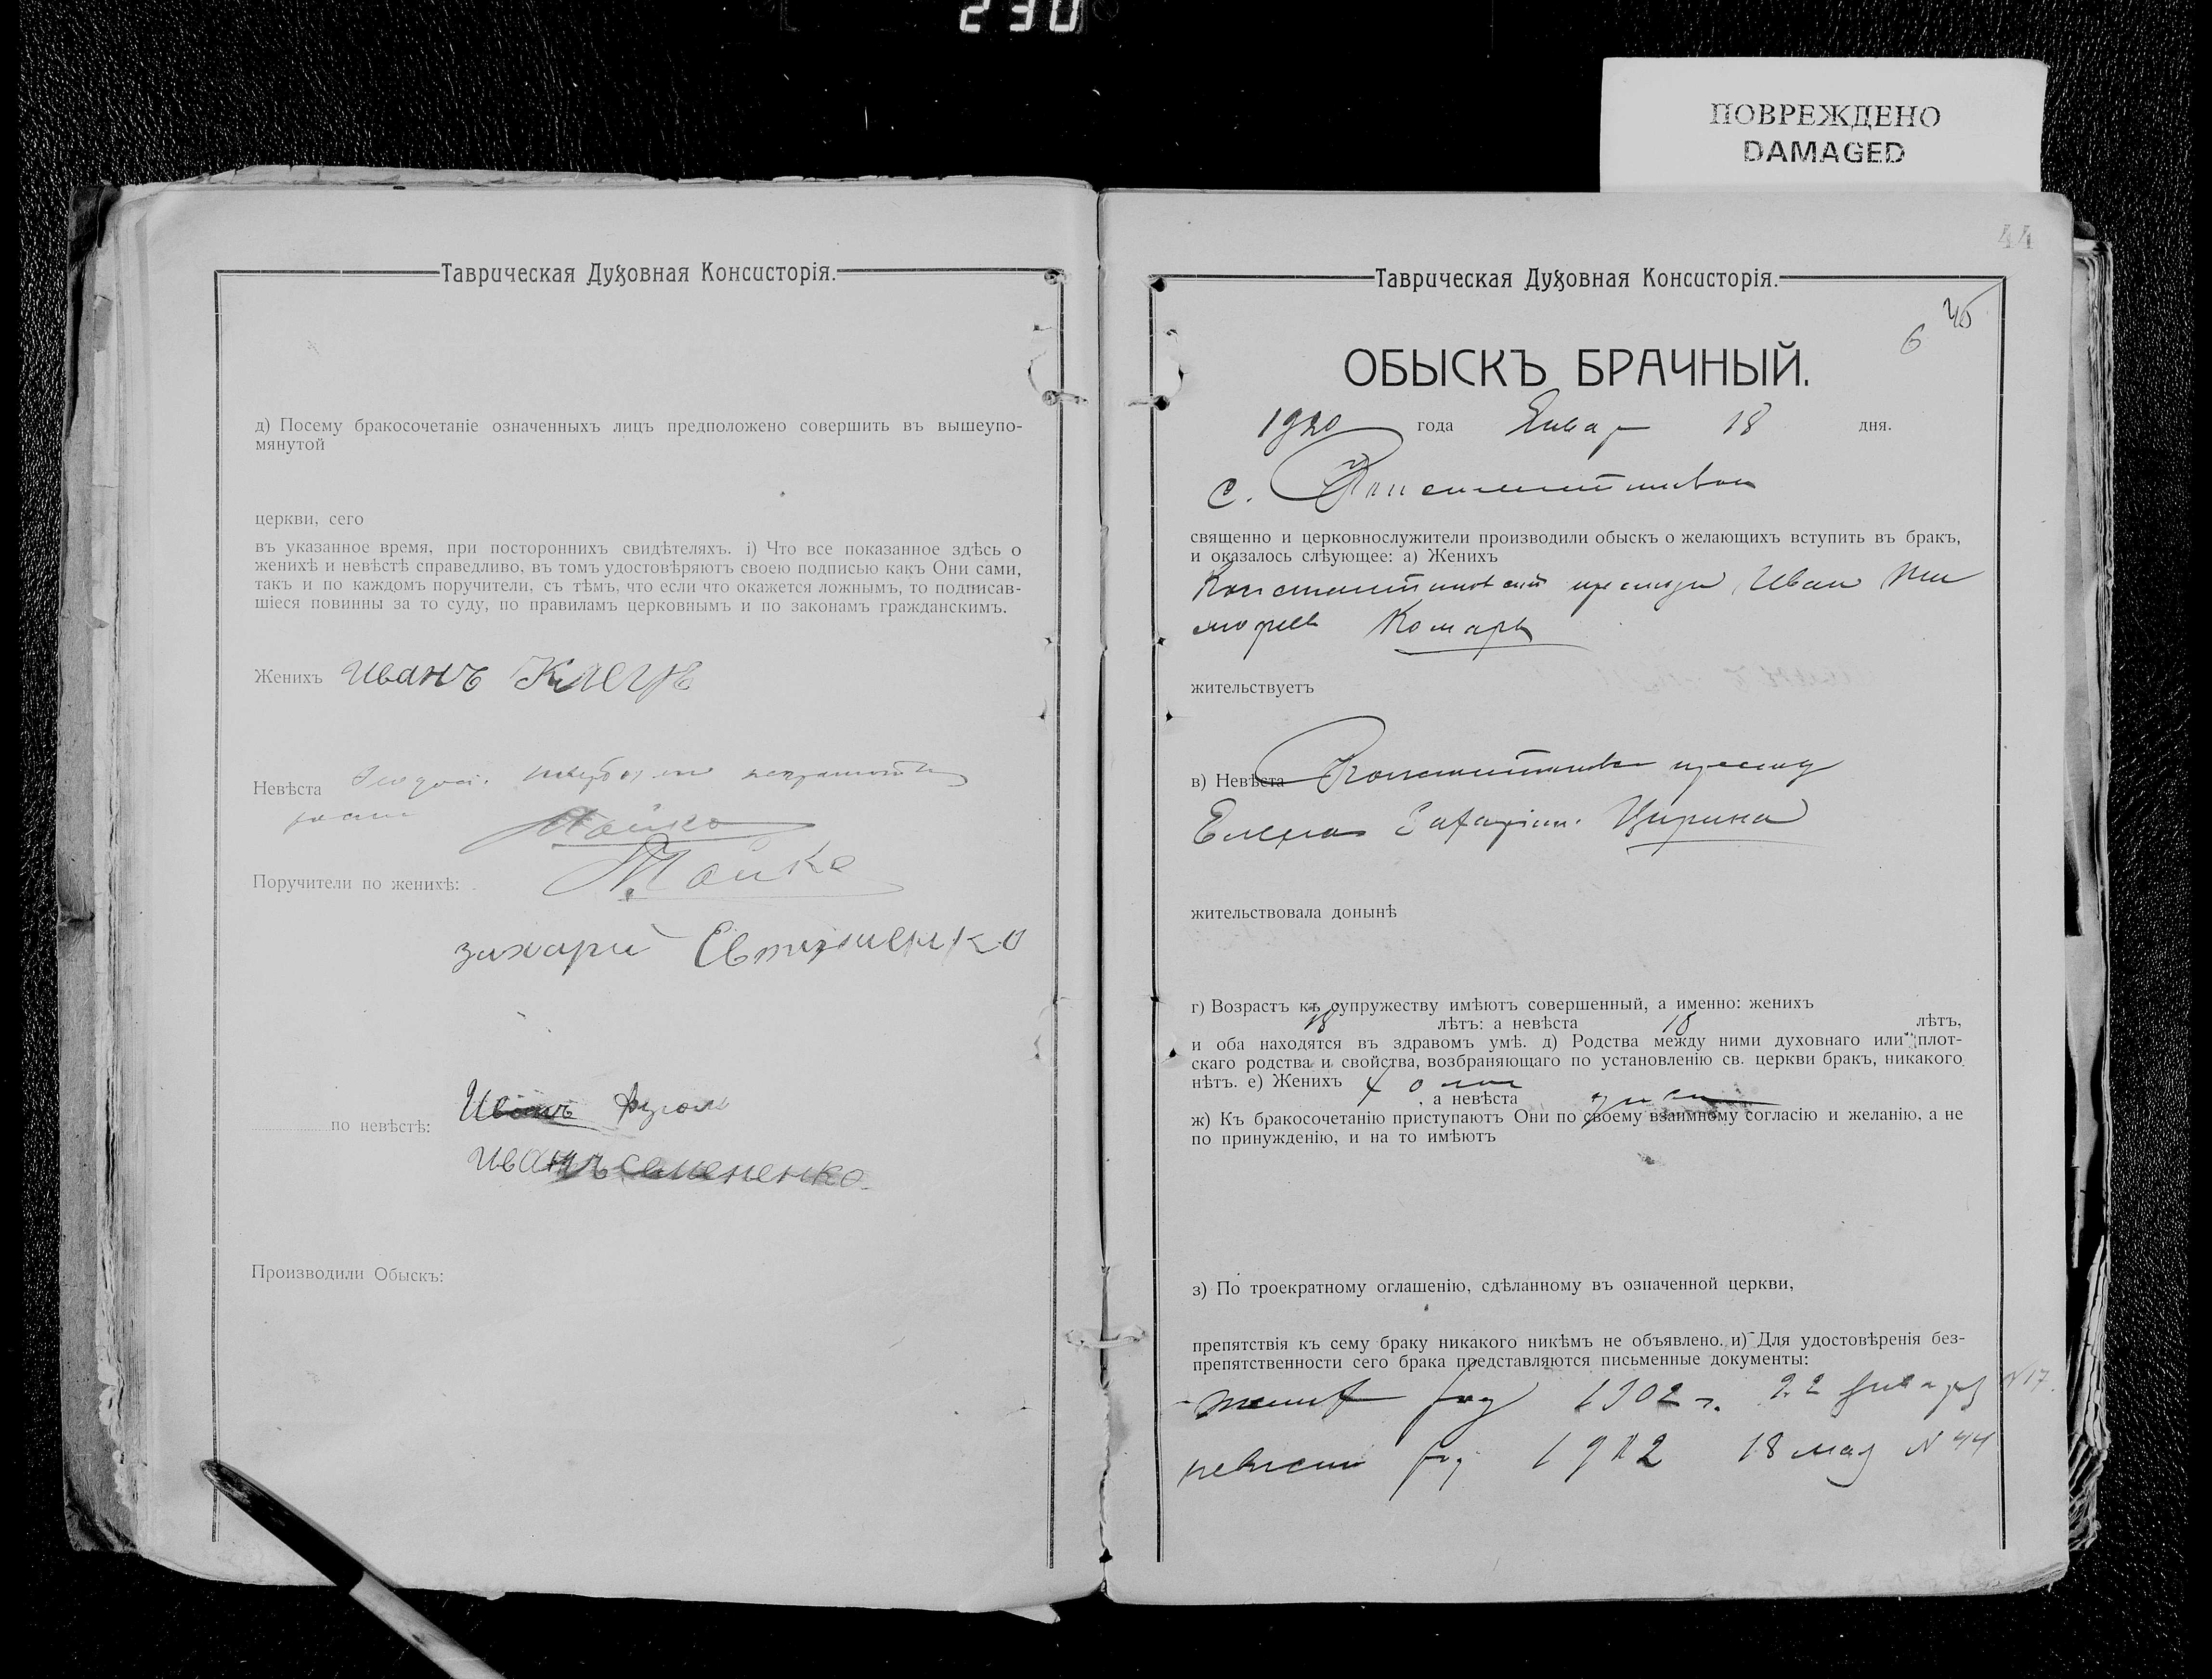 230
ПОВРЕЖДЕНО
DAMAGED
Таврическая Духовная Консисторія.
д) Посему бракосочетаніе означенныхъ лицъ предположено совершить въ вышеупо-
мянутой
церкви, сего
въ указанное время, при постороннихъ свидѣтеляхъ. і) Что все показанное здѣсь о
женихѣ и невѣстѣ справедливо, въ томъ удостовѣряютъ своею подписью какъ Они сами,
такъ и по каждомъ поручители, съ тѣмъ, что если что окажется ложнымъ, то подписав-
шіеся повинны за то суду, по правиламъ церковнымъ и по законамъ гражданскимъ.
Женихъ Иванъ
Невѣста
Поручители по женихѣ:
захарй Евтушенко
по невѣстѣ: Иванъ
Иванъ семененко
Производили Обыскъ:
44
Таврическая Духовная Консисторія.
45
6
ОБЫСКЪ БРАЧНЫЙ.
1920 года Январ 18 дня.
С.
священно и церковнослужители производили обыскъ о желающихъ вступить въ бракъ,
и оказалось слѣующее: а) Женихъ
Иван Ти
мофеев Комаръ
жительствуетъ
в) Невѣста
Елена Цирина
жительствовала донынѣ
г) Возрастъ къ супружеству имѣютъ совершенный, а именно: женихъ
18 лѣтъ: а невѣста 18 лѣтъ,
и оба находятся въ здравомъ умѣ. д) Родства между ними духовнаго или плот-
скаго родства и свойства, возбраняющаго по установленію св. церкви бракъ, никакого
нѣтъ. е) Женихъ
, а невѣста
ж) Къ бракосочетанію приступаютъ Они по своему взаимному согласію и желанію, а не
по принужденію, и на то имѣютъ
з) По троекратному оглашенію, сдѣланному въ означенной церкви,
препятствія къ сему браку никакого никѣмъ не объявлено. и) Для удостовѣренія без-
препятственности сего брака представляются письменные документы:
жених род 1902 г. 22 января N 17.
невеста род 18 мая N 44